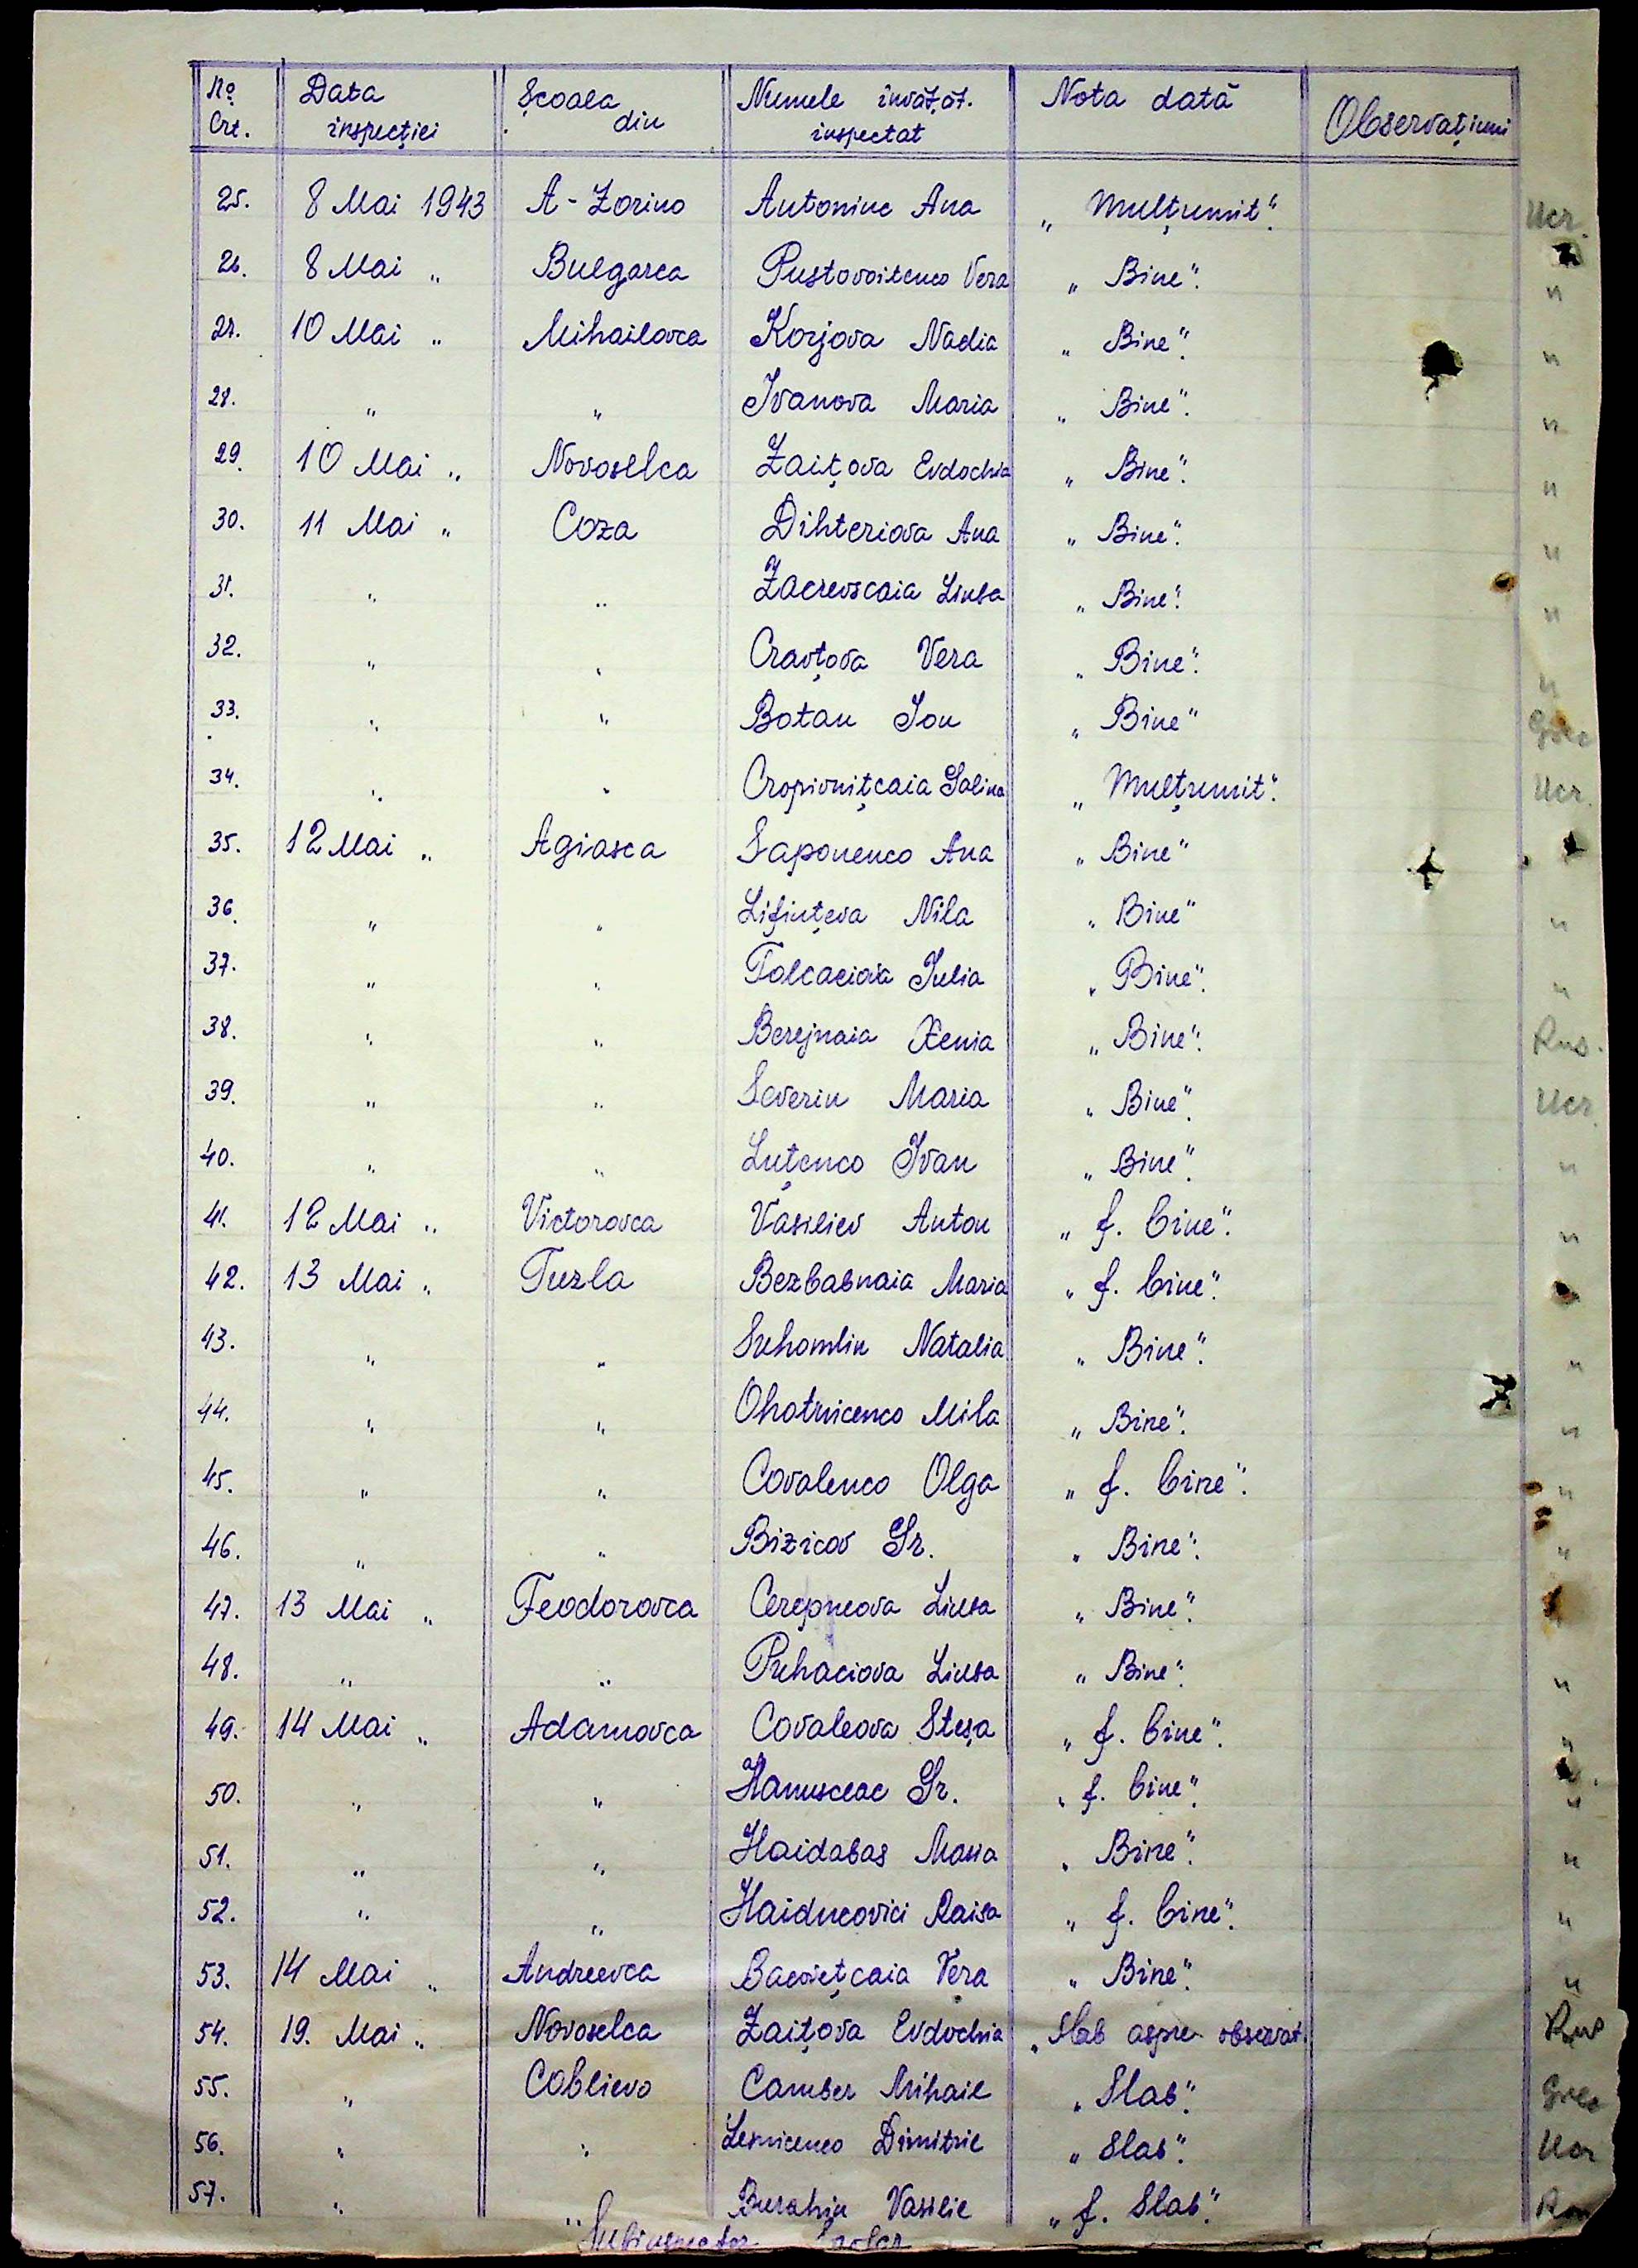 No Crt. Data inspecției Școala din Numele învățăt. inspectat Nota dată Observațiuni
25. 8 Mai 1943 A-Zorino Antoniuc Ana „Mulțumit“. Ucr.
26. 8 Mai „ Bulgarca Pustovoitenco Vera „Bine“. „
27. 10 Mai „ Mihailovca Korjova Nadia „Bine“. „
28. „ „ Ivanova Maria „Bine“. „
29. 10 Mai „ Novoselca Zaițova Evdochia „Bine“. „
30. 11 Mai „ Coza Dihteriova Ana „Bine“. „
31. „ „ Zacrevscaia Liuba „Bine“. „
32. „ „ Cravțova Vera „Bine“. „
33. „ „ Botan Ion „Bine“ Grec
34. „ „ Cropivnițcaia Galina „Mulțumit“. Ucr.
35. 12 Mai „ Agiasca Saponenco Ana „Bine“
36. „ „ Lifințeva Nila „Bine“ „
37. „ „ Tolcaciova Iulia „Bine“. „
38. „ „ Berejnaia Xenia „Bine“. Rus.
39. „ „ Severin Maria „Bine“. Ucr.
40. „ „ Luțenco Ivan „Bine“. „
41. 12 Mai „ Victorovca Vasiliev Anton „f. bine“. „
42. 13 Mai „ Tuzla Bezbabnaia Maria „f. bine“.
43. „ „ Suhomlin Natalia „Bine“. „
44. „ „ Ohotnicenco Mila „Bine“. „
45. „ „ Covalenco Olga „f. bine“. „
46. „ „ Bizicov Gr. „Bine“. „
47. 13 Mai „ Feodorovca Cerepneova Liuba „Bine“.
48. „ „ Puhaciova Liuba „Bine“. „
49. 14 Mai „ Adamovca Covaleova Steșa „f. bine“. „
50. „ „ Hanusceac Gr. „f. bine“. „
51. „ „ Haidabas Maria „Bine“. „
52. „ „ Haiducovici Raisa „f. bine“. „
53. 14 Mai „ Andreevca Vera „Bine“. „
54. 19. Mai „ Novoselca Zaițova Evdochia „Slab aspre observat. Rus
55. „ Coblievo Camber Mihail „Slab“. Grec
56. „ „ Lesnicenco Dimitrie „Slab“. Ucr
57. „ „ Burahin Vasilie „f. Slab“. Rus
Subinspector Școlar